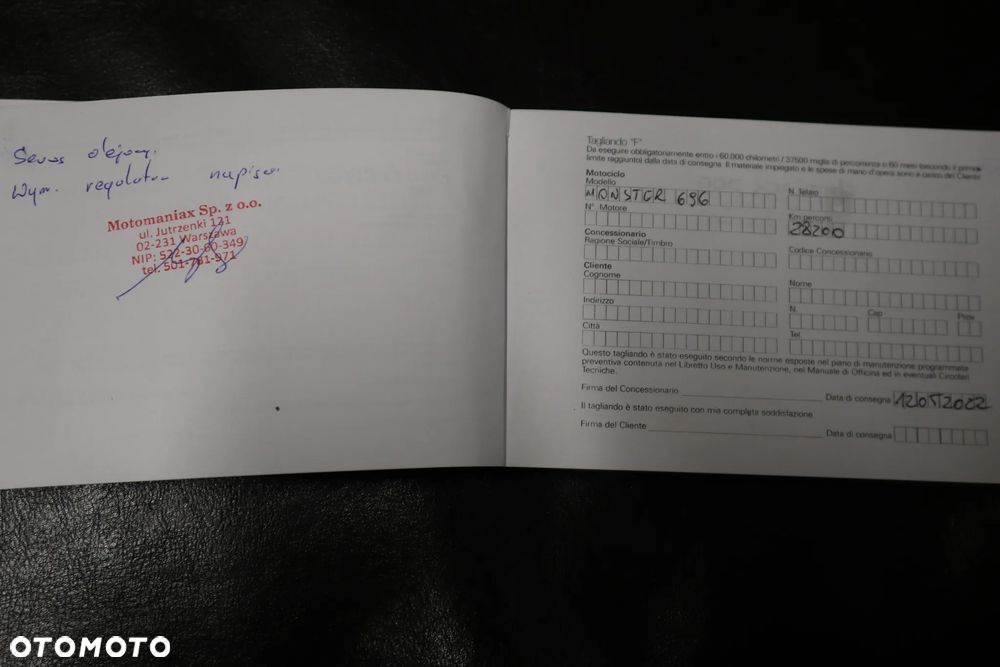 Serwis olejowy.
Wym. regulatora napięcia.
Motomaniax Sp. z o.o.
ul. Jutrzenki 121
02-231 Warszawa
NIP: 522-30-00-349
tel. 501-781-971
Tagliando "F"
Da eseguire obbligatoriamente entro i 60.000 chilometri / 37500 miglia di percorrenza o 60 mesi (secondo il primo
limite raggiunto) dalla data di consegna. Il materiale impiegato e le spese di mano d'opera sono a carico del Cliente
Motociclo
Modello
MONSTER 696
N. Telaio
N° Motore
Km percorsi
28200
Concessionario
Ragione Sociale/Timbro
Codice Concessionario
Cliente
Cognome
Nome
Indirizzo
N.
Cap
Prov.
Città
Tel.
Questo tagliando è stato eseguito secondo le norme esposte nel piano di manutenzione programmata
preventiva contenuta nel Libretto Uso e Manutenzione, nel Manuale di Officina ed in eventuali Circolari
Tecniche.
Firma del Concessionario
Data di consegna
12052022
Il tagliando è stato eseguito con mia completa soddisfazione
Firma del Cliente
Data di consegna
OTOMOTO